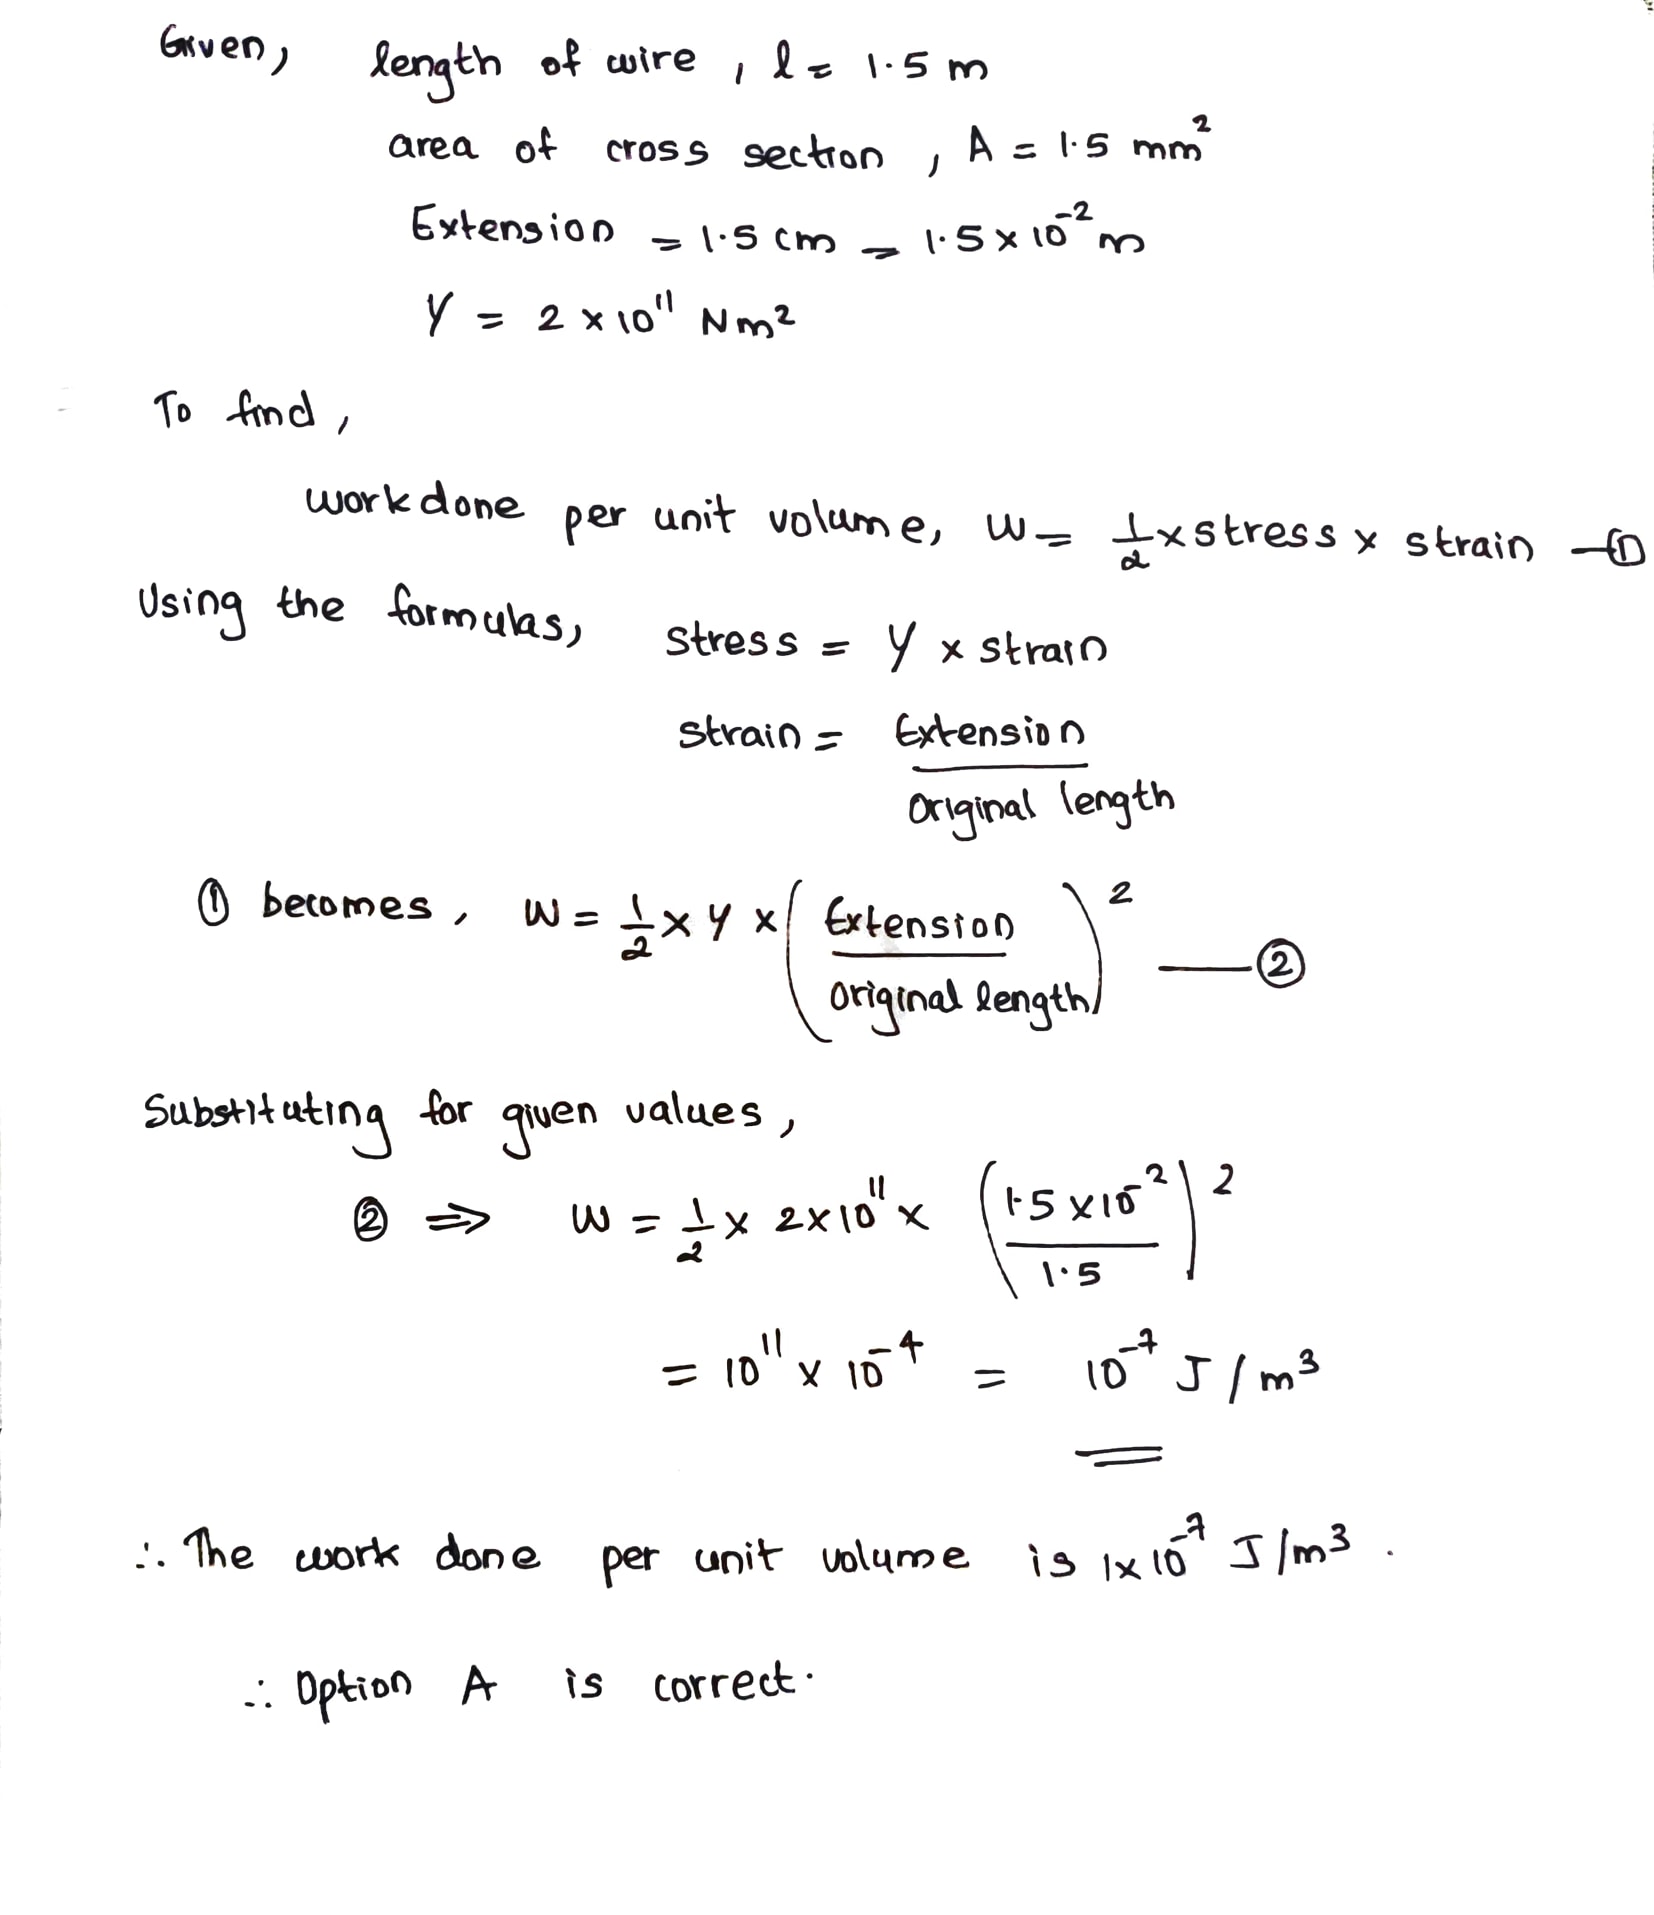 Given, length of wire, l = 1.5 m
area of cross section, A = 1.5 mm²
Extension = 1.5 cm = 1.5 × 10⁻² m
Y = 2 × 10¹¹ Nm²
To find,
work done per unit volume, W = 1/2 × stress × strain —①
Using the formulas, stress = Y × strain
strain = Extension / Original length
① becomes, W = 1/2 × Y × (Extension / Original length)² —②
Substituting for given values,
② ⇒ W = 1/2 × 2 × 10¹¹ × (1.5 × 10⁻² / 1.5)²
= 10¹¹ × 10⁻⁴ = 10⁻⁷ J/m³
∴ The work done per unit volume is 1 × 10⁻⁷ J/m³.
∴ Option A is correct.